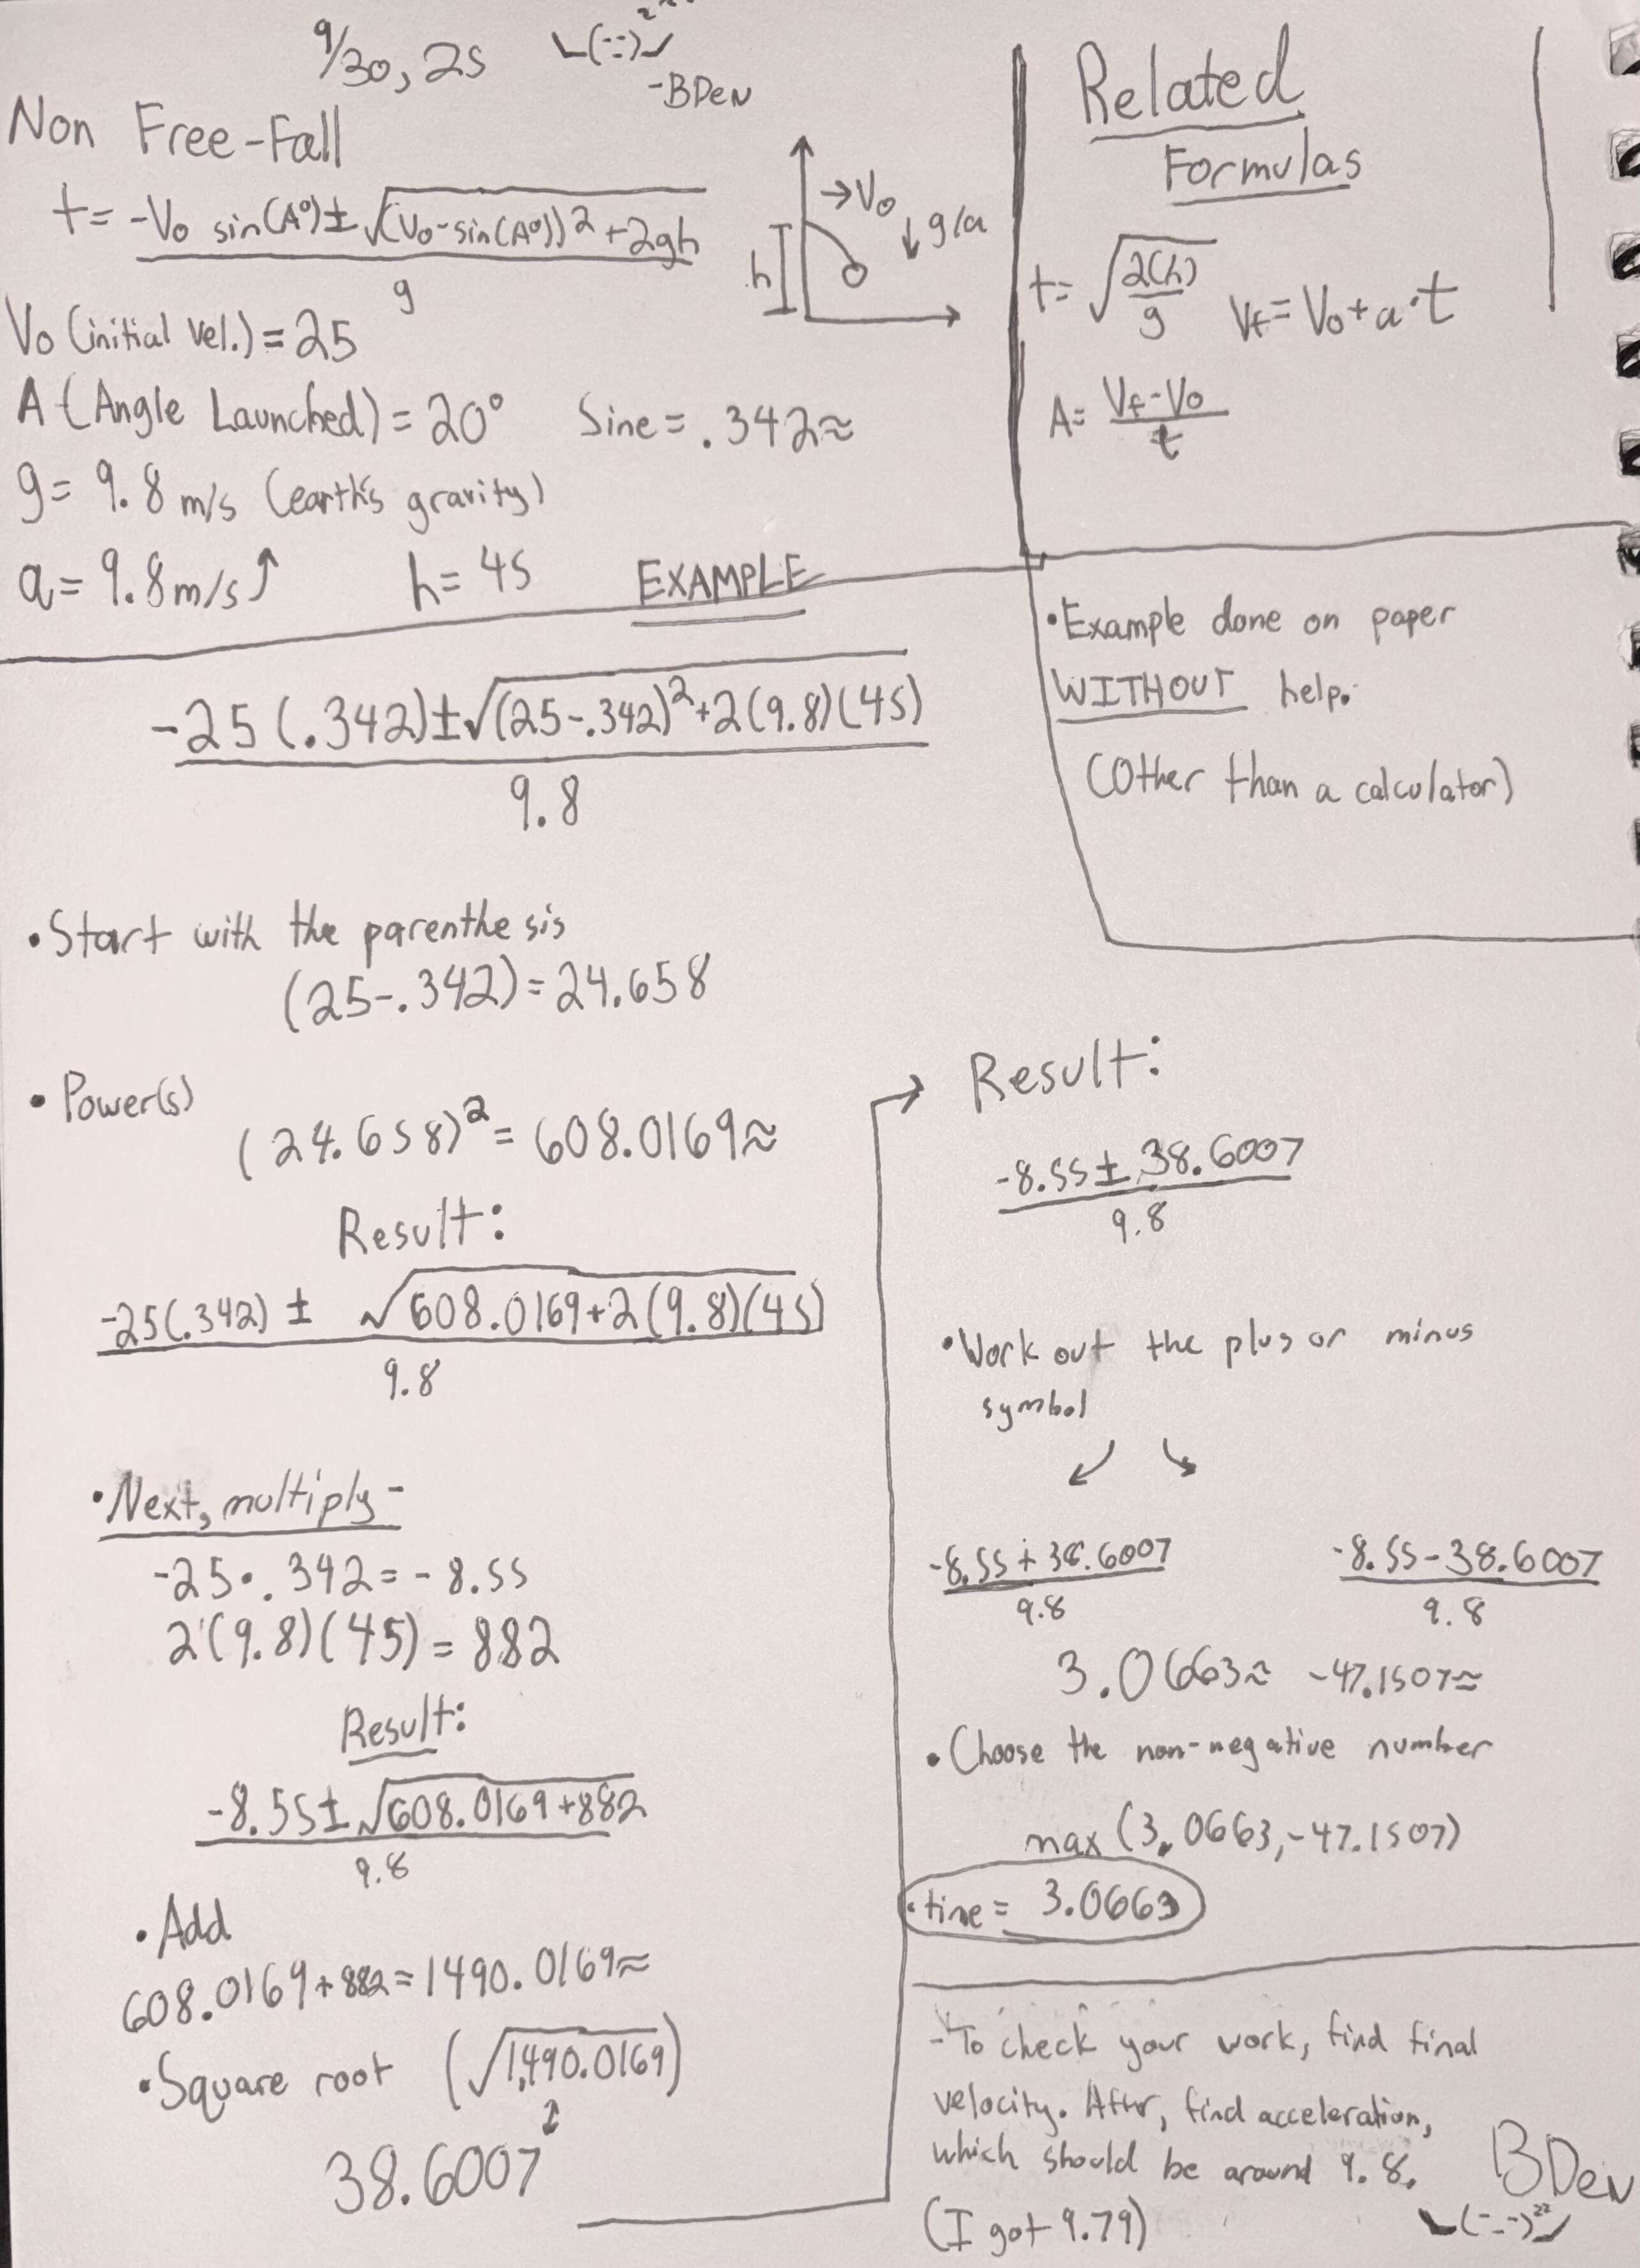 9/30, 25
-BDev
Non Free-Fall
t= -Vo sin(A°)± √(Vo-sin(A°))²+2gh
g
→Vo
↓g/a
h
Vo (initial Vel.) = 25
A (Angle Launched) = 20° Sine = .342≈
g= 9.8 m/s (earth's gravity)
a= 9.8m/s↑ h= 45 EXAMPLE
Related
Formulas
t= √2(h)/g Vf= Vo+a·t
A= Vf-Vo/t
•Example done on paper
WITHOUT help.
(Other than a calculator)
-25(.342)±√(25-.342)²+2(9.8)(45)
9.8
•Start with the parenthesis
(25-.342)=24.658
•Power(s)
(24.658)²=608.0169≈
Result:
-25(.342) ± √608.0169+2(9.8)(45)
9.8
•Next, multiply-
-25•.342=-8.55
2(9.8)(45)=882
Result:
-8.55±√608.0169+882
9.8
•Add
608.0169+882=1490.0169≈
•Square root (√1,490.0169)
38.6007
→ Result:
-8.55±38.6007
9.8
•Work out the plus or minus
symbol
-8.55+38.6007 -8.55-38.6007
9.8 9.8
3.0663≈ -47.1507≈
•Choose the non-negative number
max(3.0663,-47.1507)
•time= 3.0663
-To check your work, find final
velocity. After, find acceleration,
which should be around 9.8.
(I got 9.79)
BDev